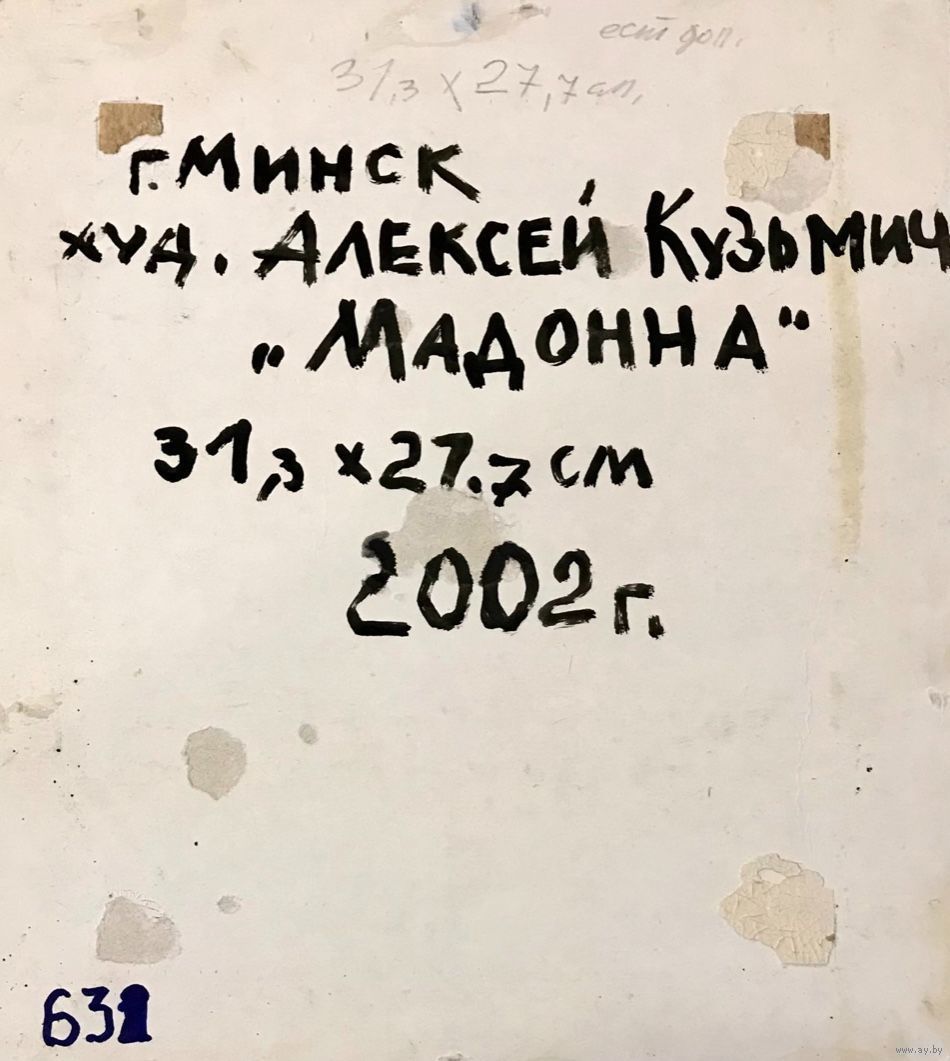 ест доп.
31,3 х 27,7 см,
г. Минск
худ. Алексей Кузьмич
„Мадонна“
31,3 х 27.7 см
2002 г.
631
www.ay.by